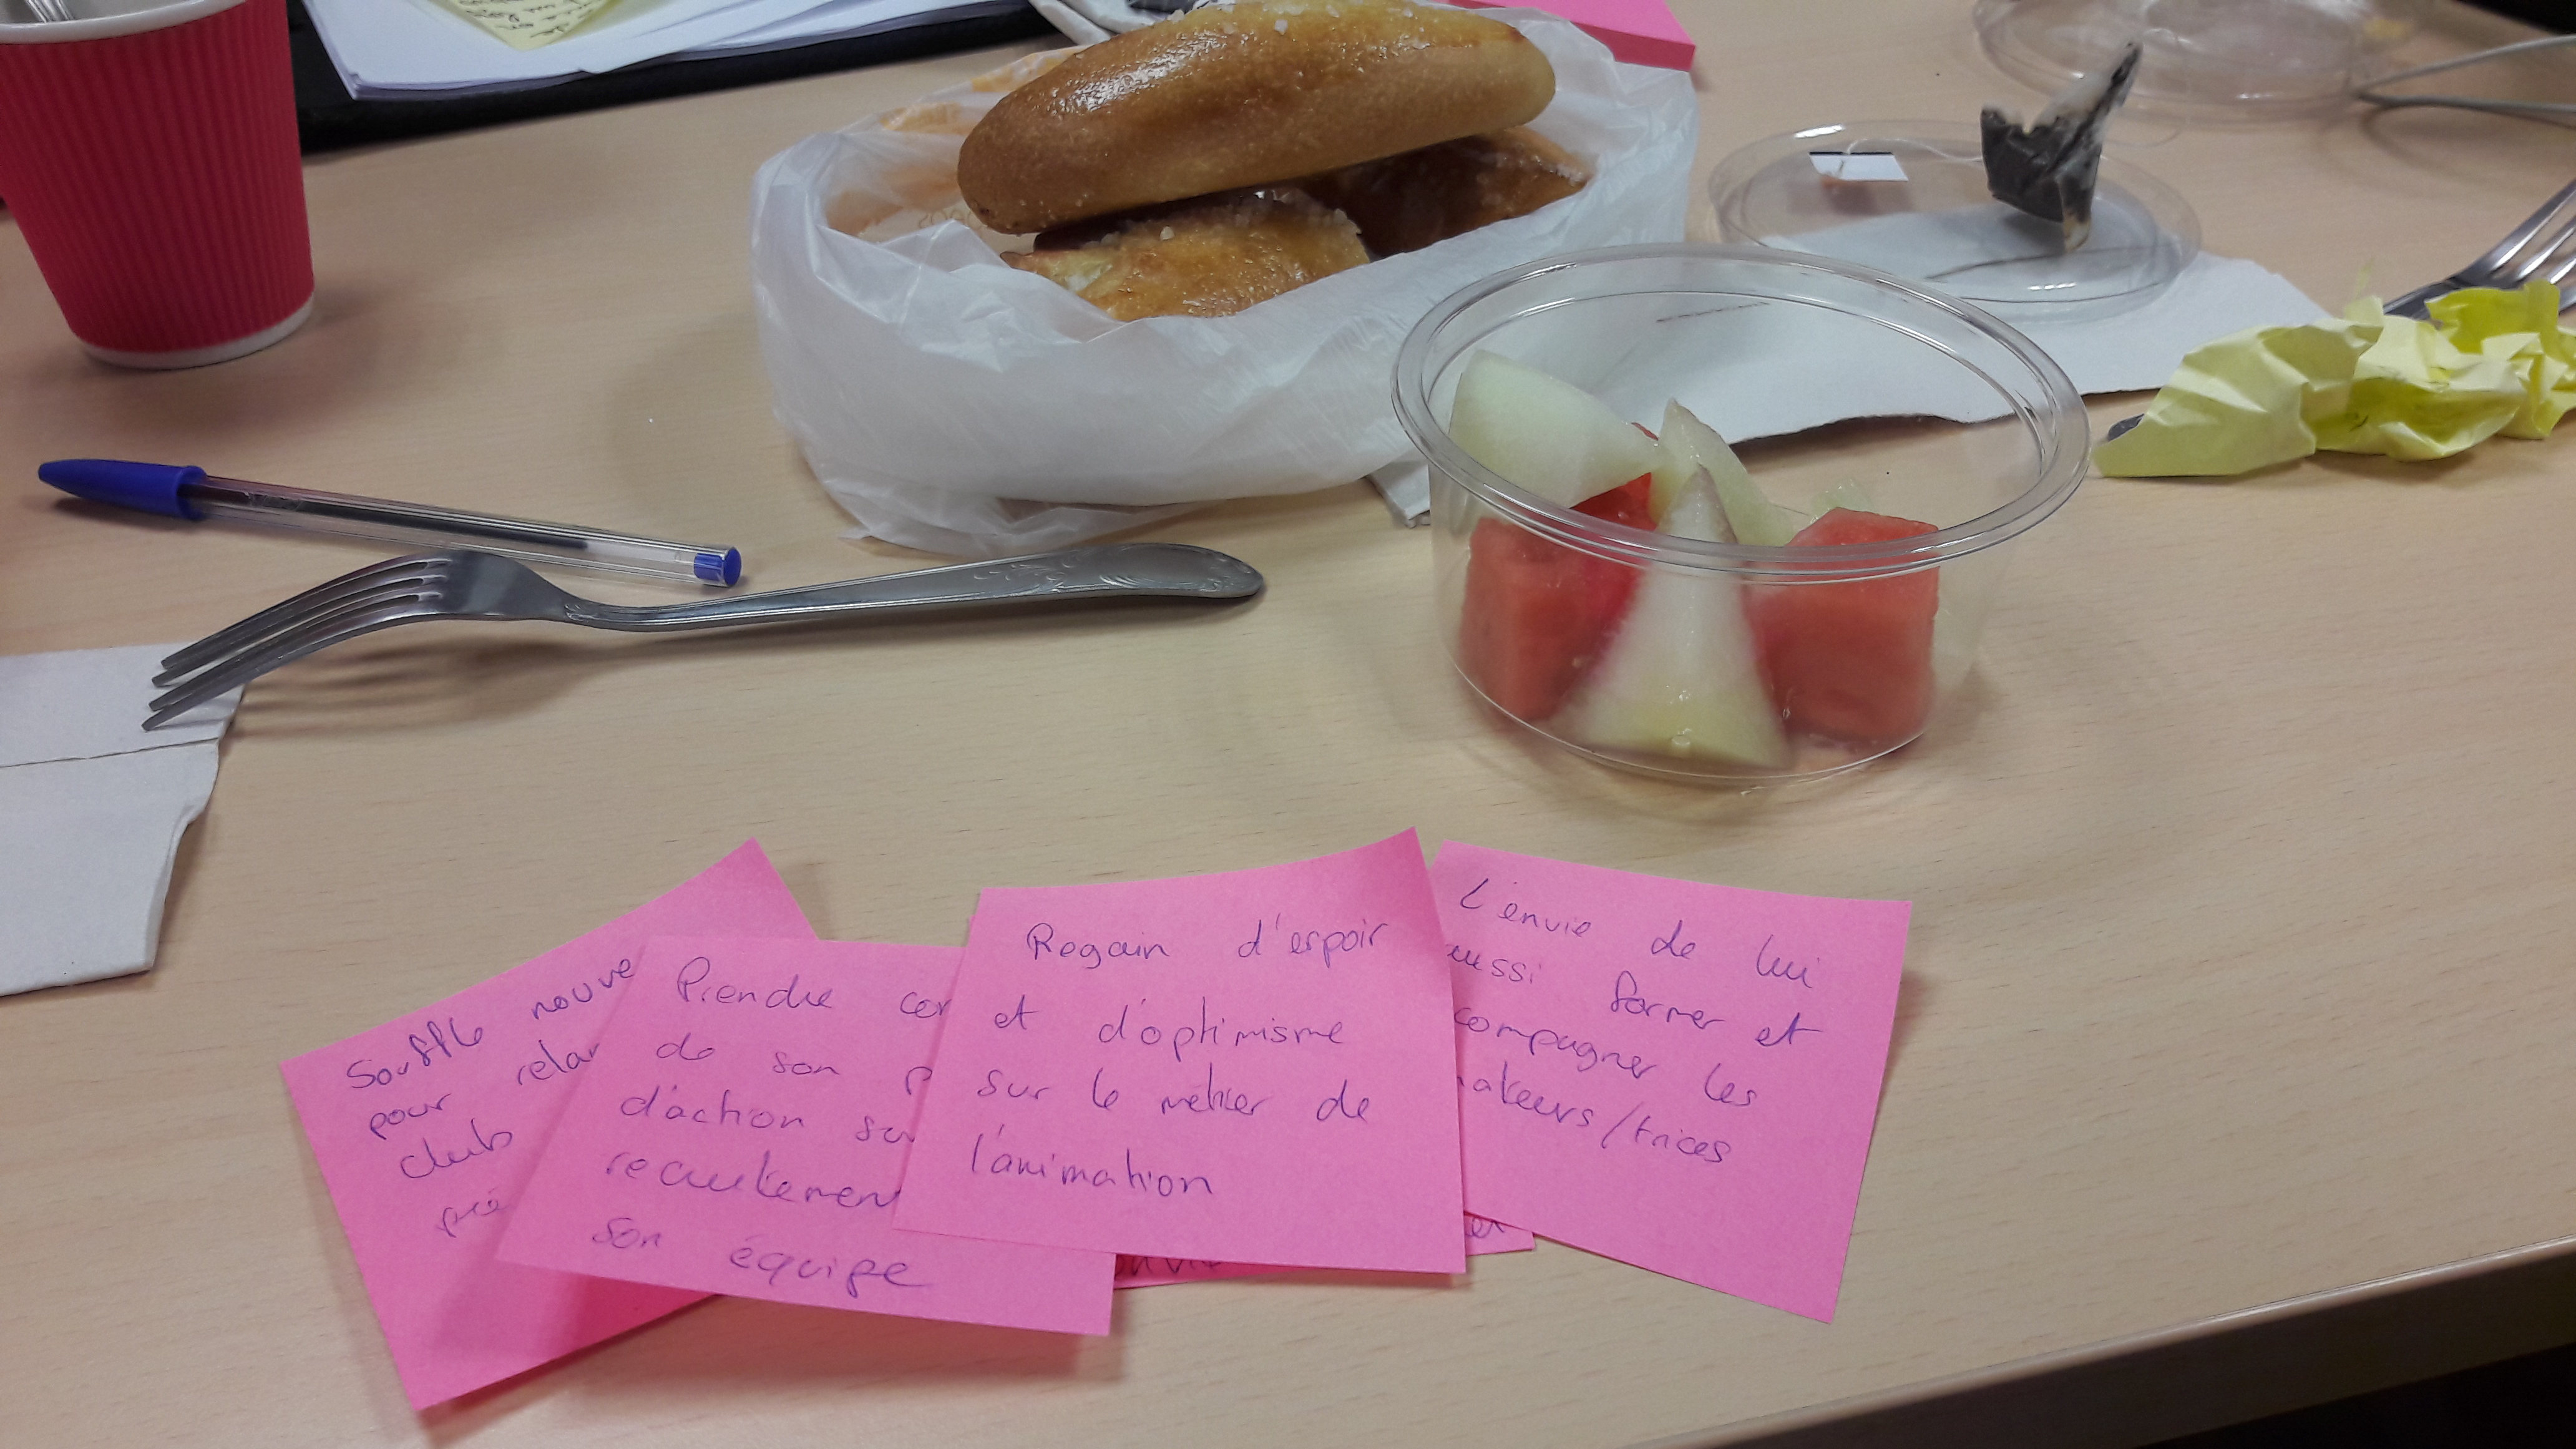 Souffle nouve
pour relan
club
pré
Prendre con
de son p
d'action sur
recrutement
son équipe
Regain d'espoir
et d'optimisme
sur le métier de
l'animation
L'envie de lui
aussi former et
compagner les
makeurs/trices
et